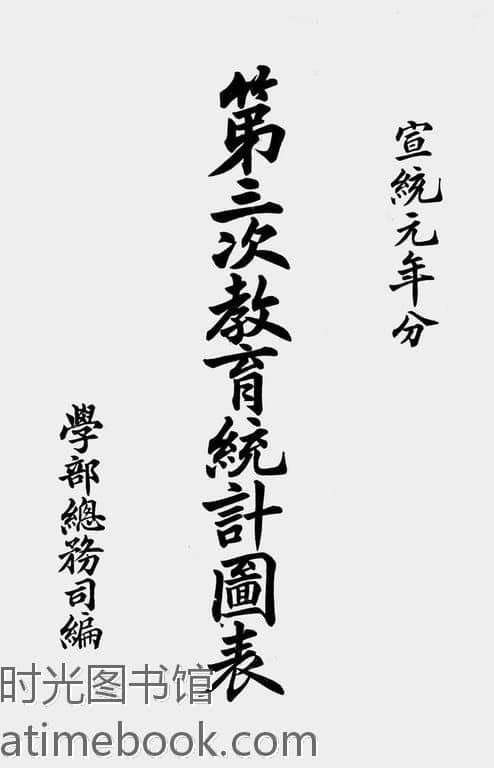 宣統元年分
第三次教育統計圖表
學部總務司編
时光图书馆
atimebook.com